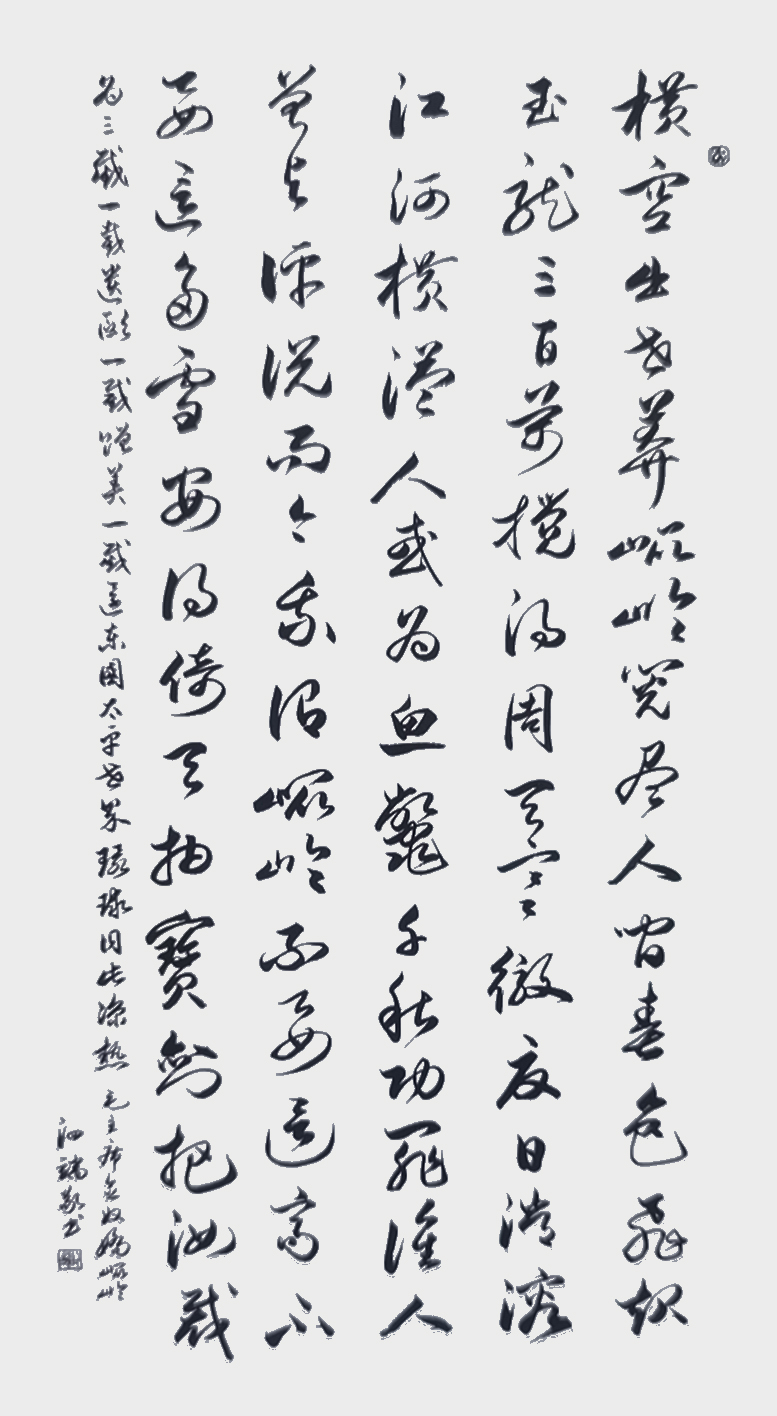 横空出世莽崐崘阅尽人间春色飞起
玉龙三百万搅得周天寒彻夏日消溶
江河横溢人或为鱼鳖千秋功罪谁人
曾与评说而今我谓崐崘不要这高不
要这多雪安得倚天抽寶剑把汝裁
为三截一截遗欧一截赠美一截还东国太平世界环球同此凉热 毛主席念奴娇崐崘
书